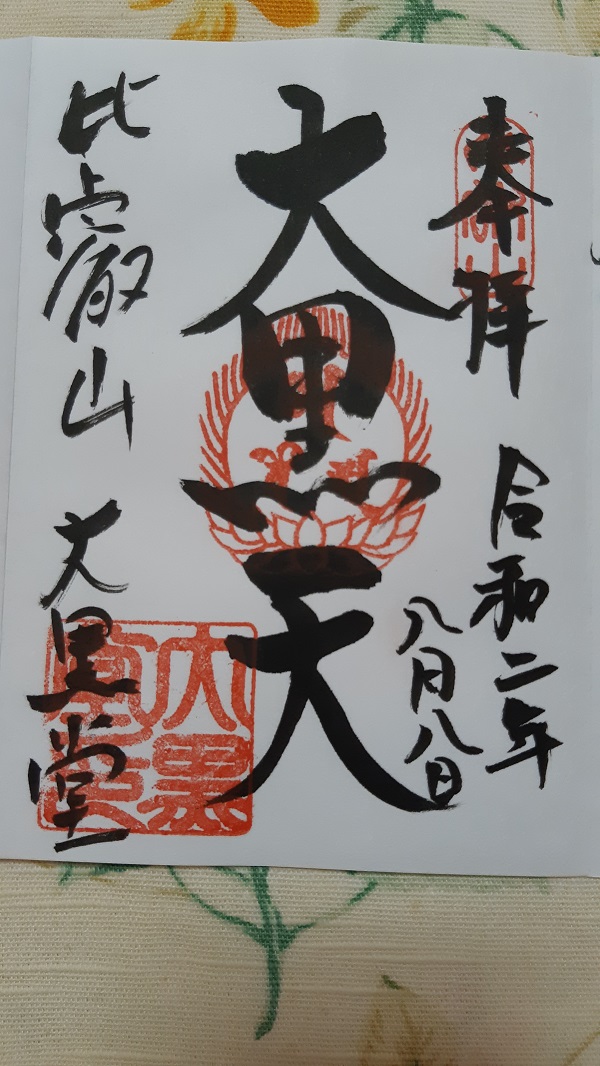 奉拝
令和二年
八月八日
大黒天
比叡山
大黒堂
大黒
堂印